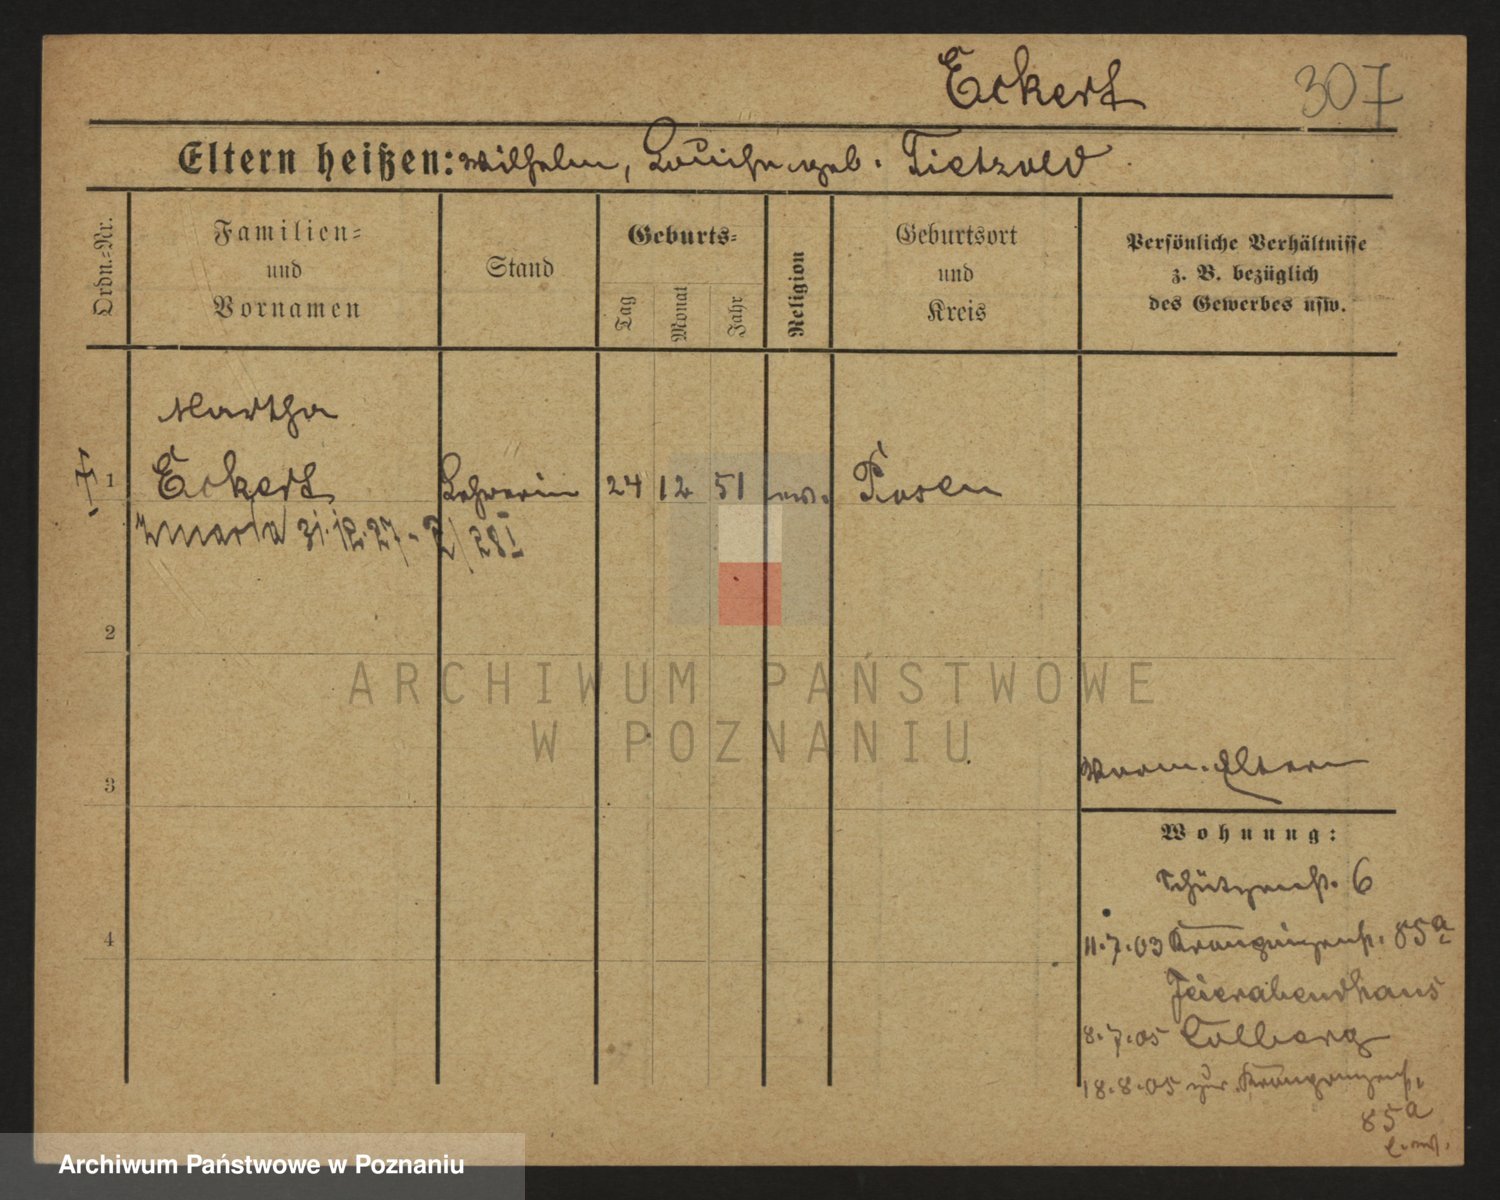 Eckert 307
Eltern heißen: Wilhelm, Louise geb. Tietzold
Ordn.-Nr.
Familien-
und
Vornamen
Stand
Geburts-
Tag
Monat
Jahr
Religion
Geburtsort
und
Kreis
Persönliche Verhältnisse
z. B. bezüglich
des Gewerbes usw.
Martha
1 Eckert Lehrerin 24 12 51 ev. Posen
31.12.27
2
ARCHIWUM PAŃSTWOWE
W POZNANIU
3
Eltern
Wohnung:
Schützenst. 6
4
11.7.03 Kronprinzenst. 85a
Feierabendhaus
8.7.05 Colberg
18.8.05 zur. Kronprinzenst.
85a
Archiwum Państwowe w Poznaniu